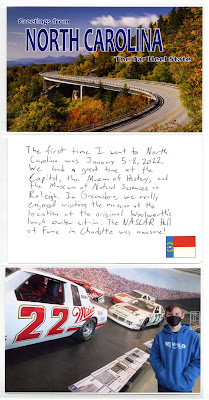 Greetings from
NORTH CAROLINA
The Tar Heel State
The first time I went to North
Carolina was January 5-8, 2022.
We had a great time at the
Capitol, the Museum of History, and
the Museum of Natural Sciences in
Raleigh. In Greensboro, we really
enjoyed visiting the museum at the
location of the original Woolworth's
lunch counter sit-in. The NASCAR Hall
of Fame in Charlotte was awesome!
22
Miller